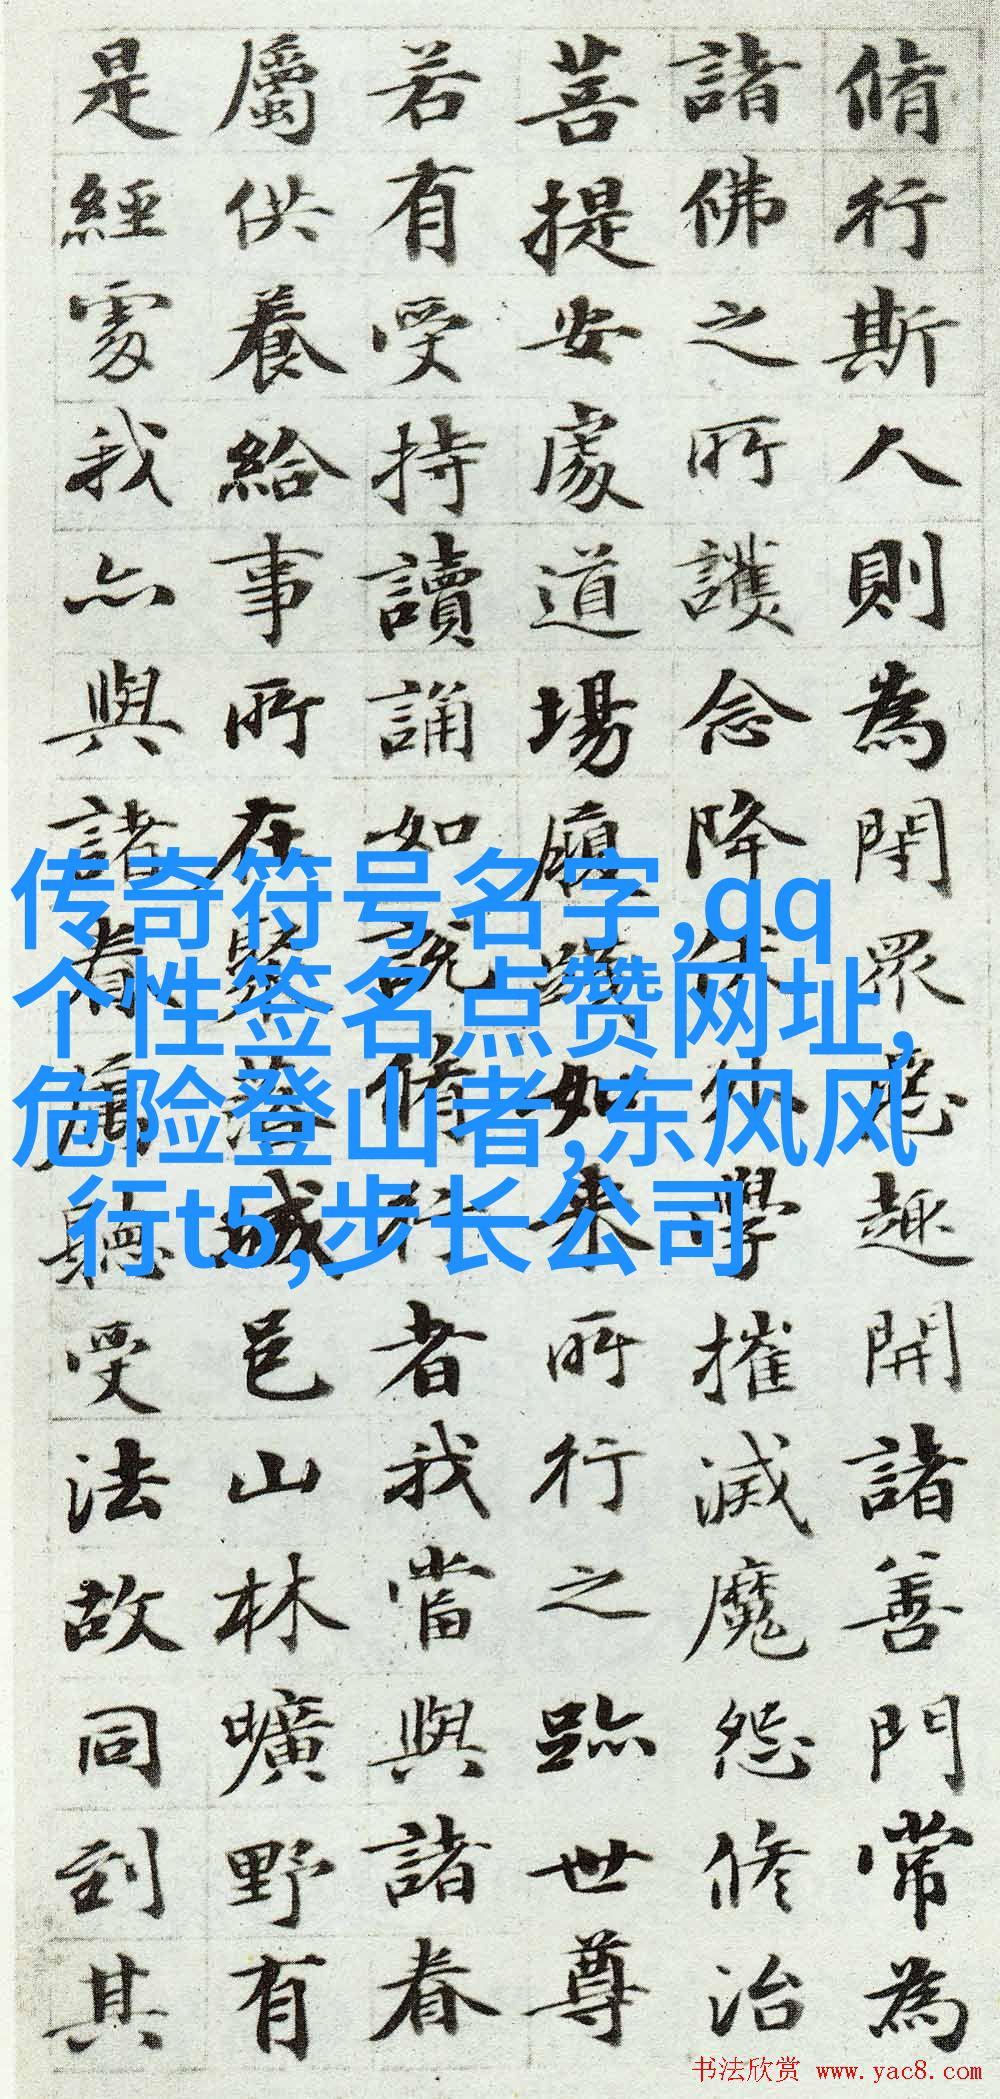 脩行斯人則為閇眾惡趣開諸善門常為
諸佛之所護念降伏外學摧滅魔怨修治
菩提安處道場履踐如來所行之跡世尊
若有受持讀誦如說脩行者我當與諸眷
屬供養給事所在聚落城邑山林曠野有
是經處我亦與諸眷屬聽受法故同到其
传奇符号名字,qq
个性签名点赞网址,
危险登山者,东风风
行t5,步长公司
书法欣赏 www.yac8.com